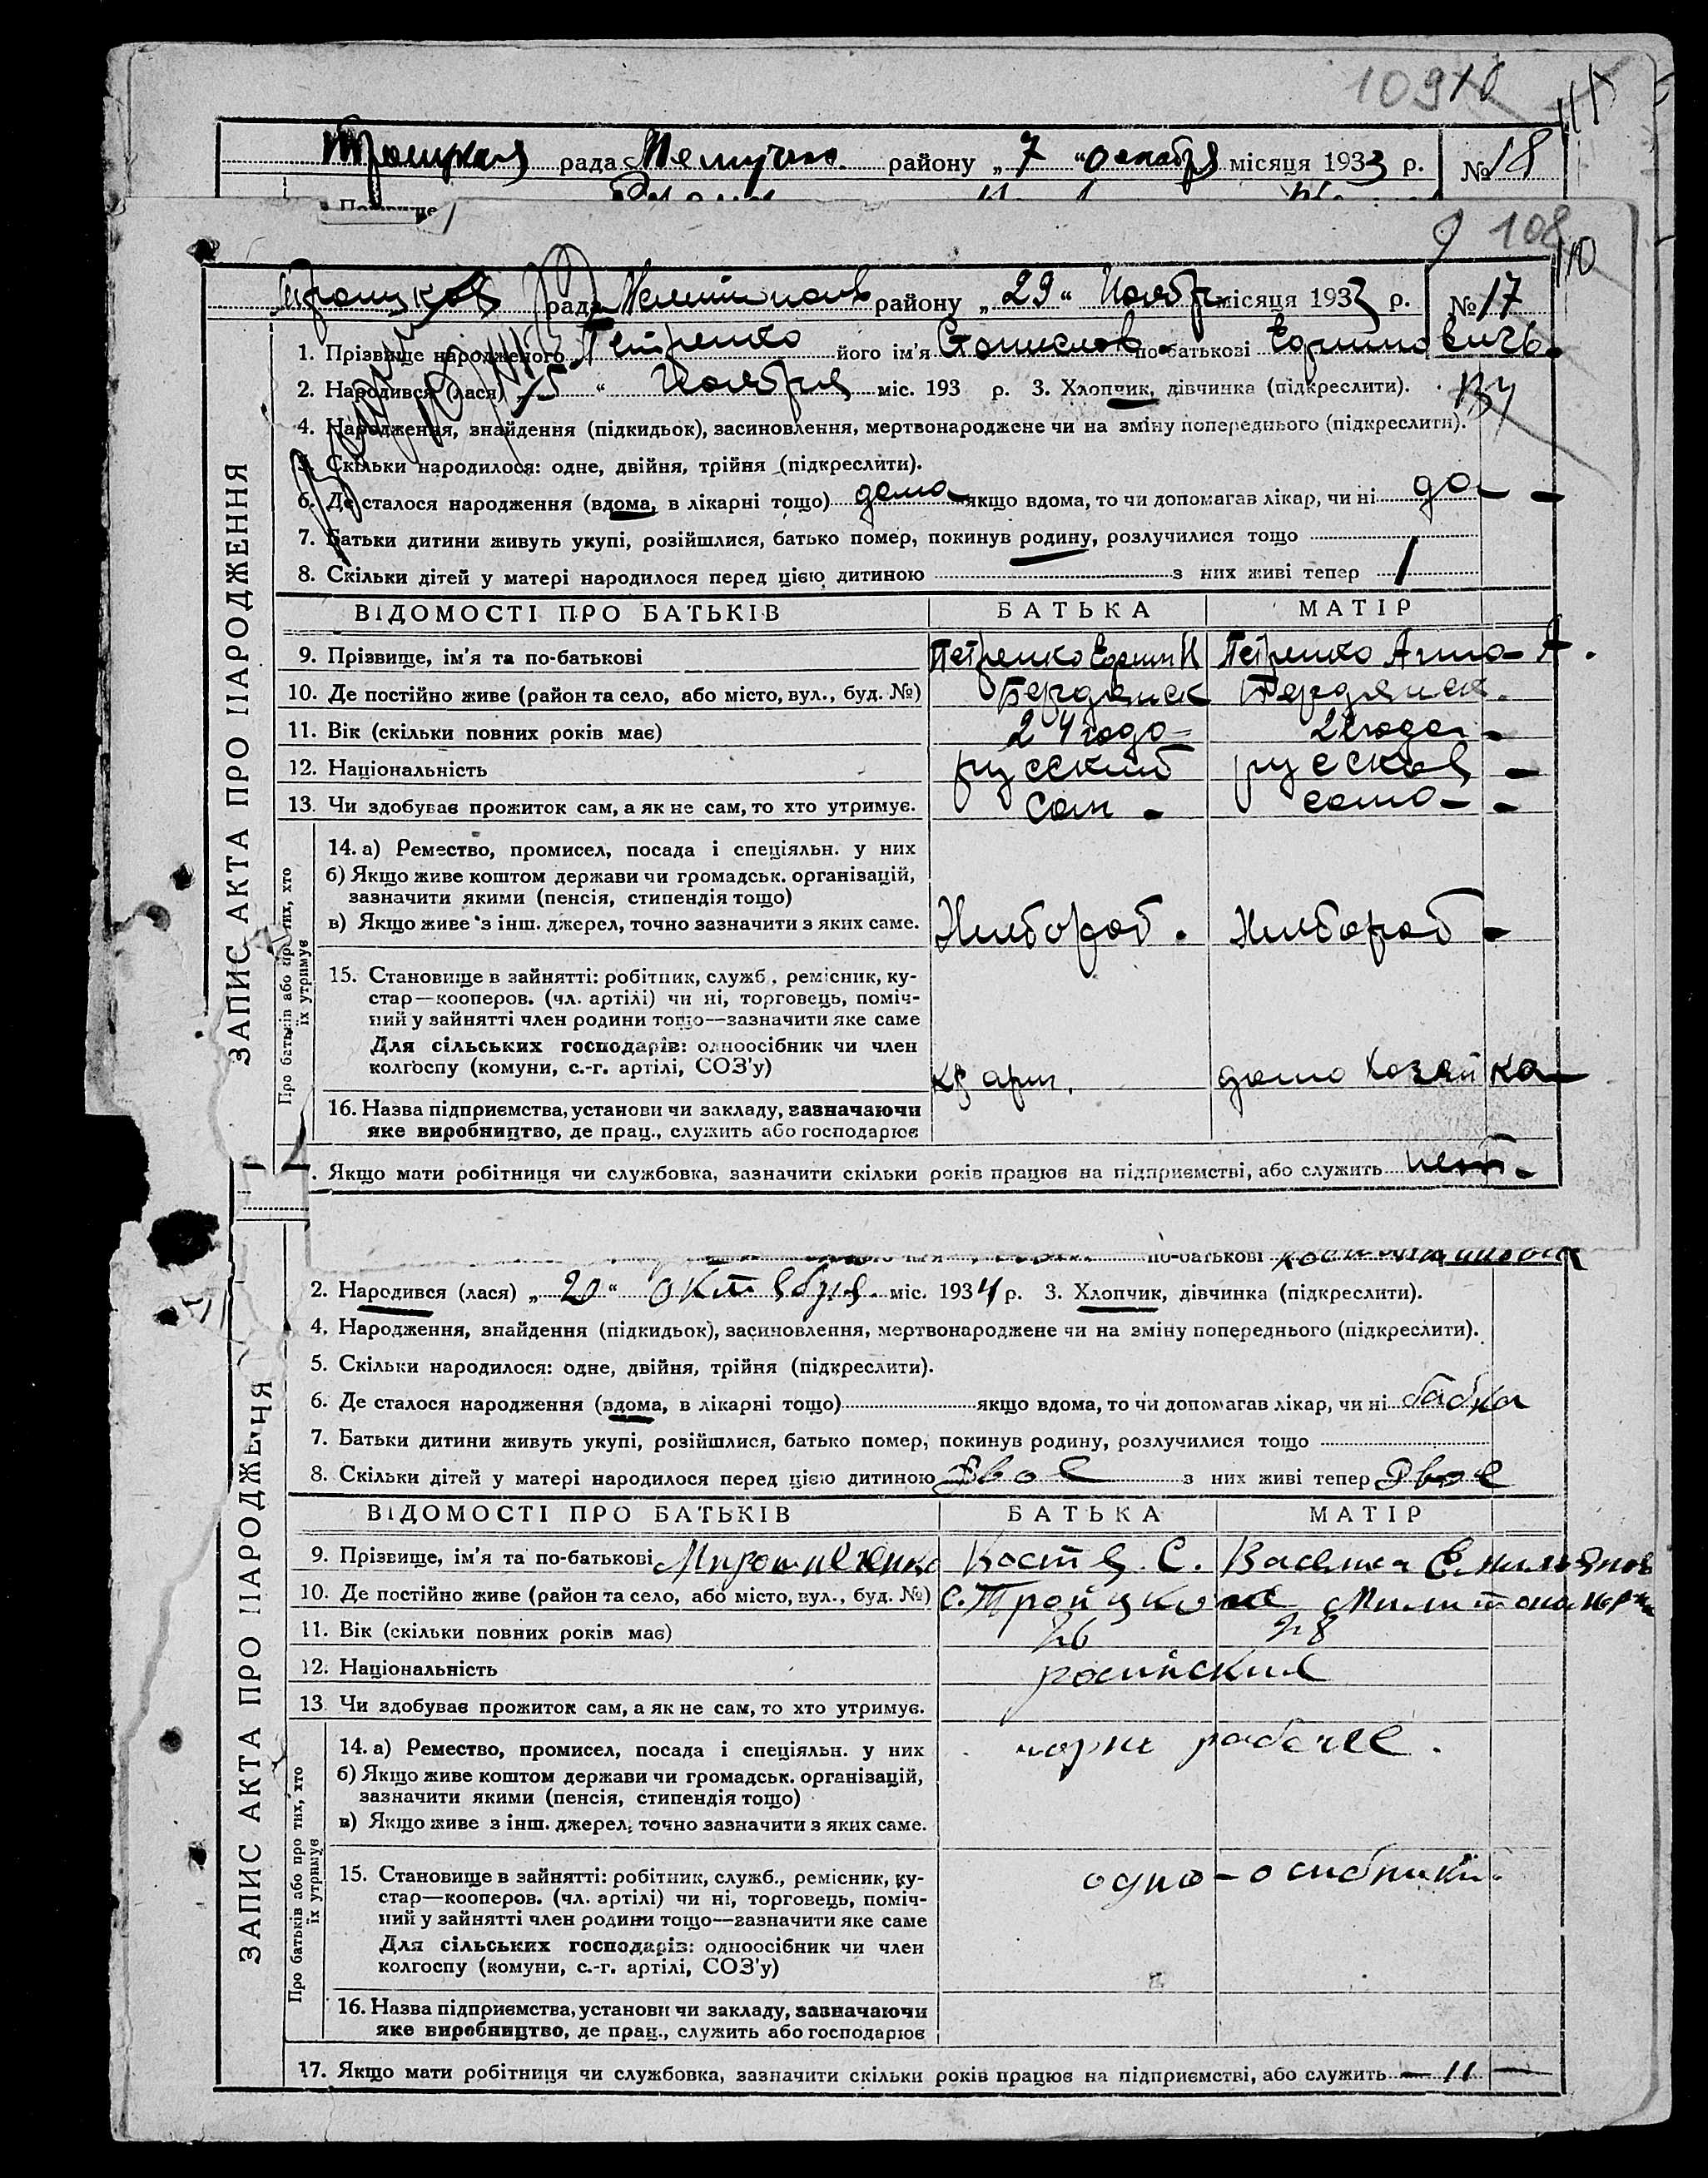 109 10
Троицкая рада Мелитоп. району „ 7 “ декабря місяця 1933 р. № 18
108
Троицкая рада Мелитополь району „ 29 “ Ноябр місяця 1933 р. № 17
1. Прізвище народженого Петренко його ім'я Станислов по-батькові Ефимовичь
2. Народився (лася) „ 15 “ Ноября міс. 193 р. 3. Хлопчик, дівчинка (підкреслити).
4. Народження, знайдення (підкидьок), засиновлення, мертвонароджене чи на зміну попереднього (підкреслити).
5. Скільки народилося: одне, двійня, трійня (підкреслити).
6. Де сталося народження (вдома, в лікарні тощо) дома якщо вдома, то чи допомагав лікар, чи ні да
7. Батьки дитини живуть укупі, розійшлися, батько помер, покинув родину, розлучилися тощо
8. Скільки дітей у матері народилося перед цією дитиною з них живі тепер 1
ЗАПИС АКТА ПРО НАРОДЖЕННЯ
ВІДОМОСТІ ПРО БАТЬКІВ БАТЬКА МАТІР
9. Прізвище, ім'я та по-батькові Петренко Ефим И Петренко Анна А.
10. Де постійно живе (район та село, або місто, вул., буд. №) Бердянск Бердянск.
11. Вік (скільки повних років має) 24 года года
12. Національність русский русская
13. Чи здобував прожиток сам, а як не сам, то хто утримує. сам сама
Про батьків або про тих, хто їх утримує
14. а) Ремество, промисел, посада і спеціяльн. у них
б) Якщо живе коштом держави чи громадськ. організацій,
зазначити якими (пенсія, стипендія тощо)
в) Якщо живе з інш. джерел, точно зазначити з яких саме. Хлебороб. Хлебороб
15. Становище в зайнятті: робітник, служб., ремісник, ку-
стар—кооперов. (чл. артілі) чи ні, торговець, поміч-
ний у зайнятті член родини тощо—зазначити яке саме
Для сільських господарів: одноосібник чи член
колгоспу (комуни, с.-г. артілі, СОЗ'у) арт. дома хозяйка
16. Назва підприємства, установи чи закладу, зазначаючи
яке виробництво, де прац., служить або господарює
. Якщо мати робітниця чи службовка, зазначити скільки років працює на підприємстві, або служить нет
по-батькові
2. Народився (лася) „ 20 “ октября міс. 1934 р. 3. Хлопчик, дівчинка (підкреслити).
4. Народження, знайдення (підкидьок), засиновлення, мертвонароджене чи на зміну попереднього (підкреслити).
5. Скільки народилося: одне, двійня, трійня (підкреслити).
6. Де сталося народження (вдома, в лікарні тощо) якщо вдома, то чи допомагав лікар, чи ні бабка
7. Батьки дитини живуть укупі, розійшлися, батько помер, покинув родину, розлучилися тощо
8. Скільки дітей у матері народилося перед цією дитиною Двое з них живі тепер Двое
ЗАПИС АКТА ПРО НАРОДЖЕННЯ
ВІДОМОСТІ ПРО БАТЬКІВ БАТЬКА МАТІР
9. Прізвище, ім'я та по-батькові Мирошнеченко Костя. С. Василиса Емильянов
10. Де постійно живе (район та село, або місто, вул., буд. №) с. Тройцкое
11. Вік (скільки повних років має) 26 28
12. Національність
13. Чи здобував прожиток сам, а як не сам, то хто утримує.
Про батьків або про тих, хто їх утримує
14. а) Ремество, промисел, посада і спеціяльн. у них чорни рабочее.
б) Якщо живе коштом держави чи громадськ. організацій,
зазначити якими (пенсія, стипендія тощо)
в) Якщо живе з інш. джерел, точно зазначити з яких саме.
15. Становище в зайнятті: робітник, служб., ремісник, ку-
стар—кооперов. (чл. артілі) чи ні, торговець, поміч-
ний у зайнятті член родини тощо—зазначити яке саме
Для сільських господарів: одноосібник чи член
колгоспу (комуни, с.-г. артілі, СОЗ'у) одно-осибники
16. Назва підприємства, установи чи закладу, зазначаючи
яке виробництво, де прац., служить або господарює
17. Якщо мати робітниця чи службовка, зазначити скільки років працює на підприємстві, або служить — 11 —